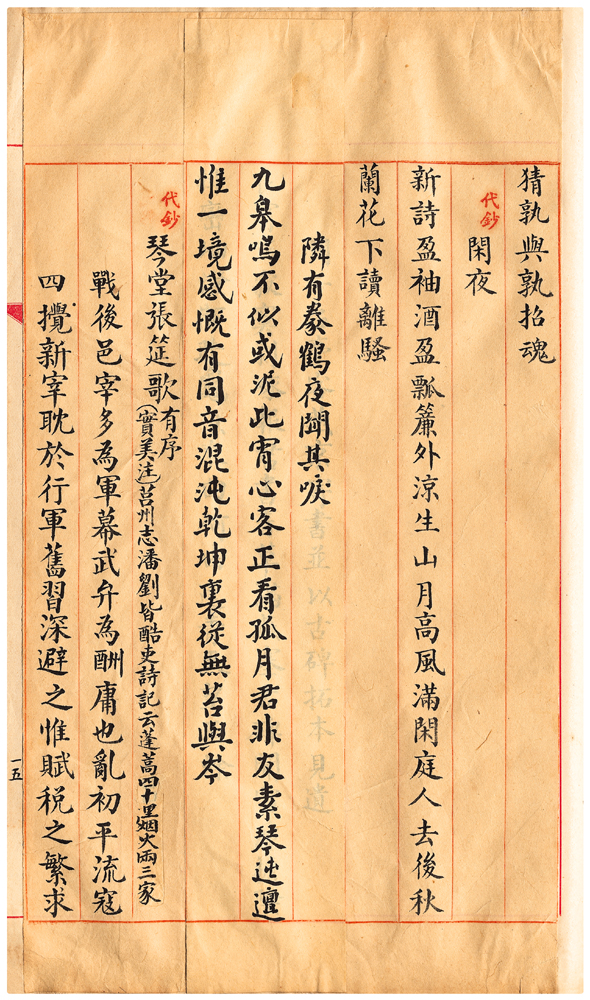 猜孰與孰招魂
代鈔
閑夜
新詩盈袖酒盈瓢簾外涼生山月高風滿閑庭人去後秋
蘭花下讀離騷
隣有豢鶴夜聞其唳
九皋鳴不似或泥此宵心客正看孤月君非友素琴迍邅
惟一境感慨有同音混沌乾坤裏從無苔與岑
代鈔
琴堂張筵歌有序
(實美注)莒州志潘劉皆酷吏詩記云蓬蒿四十里烟火兩三家
戰後邑宰多為軍幕武弁為酬庸也亂初平流寇
四攪新宰耽於行軍舊習深避之惟賦税之繁求
一五